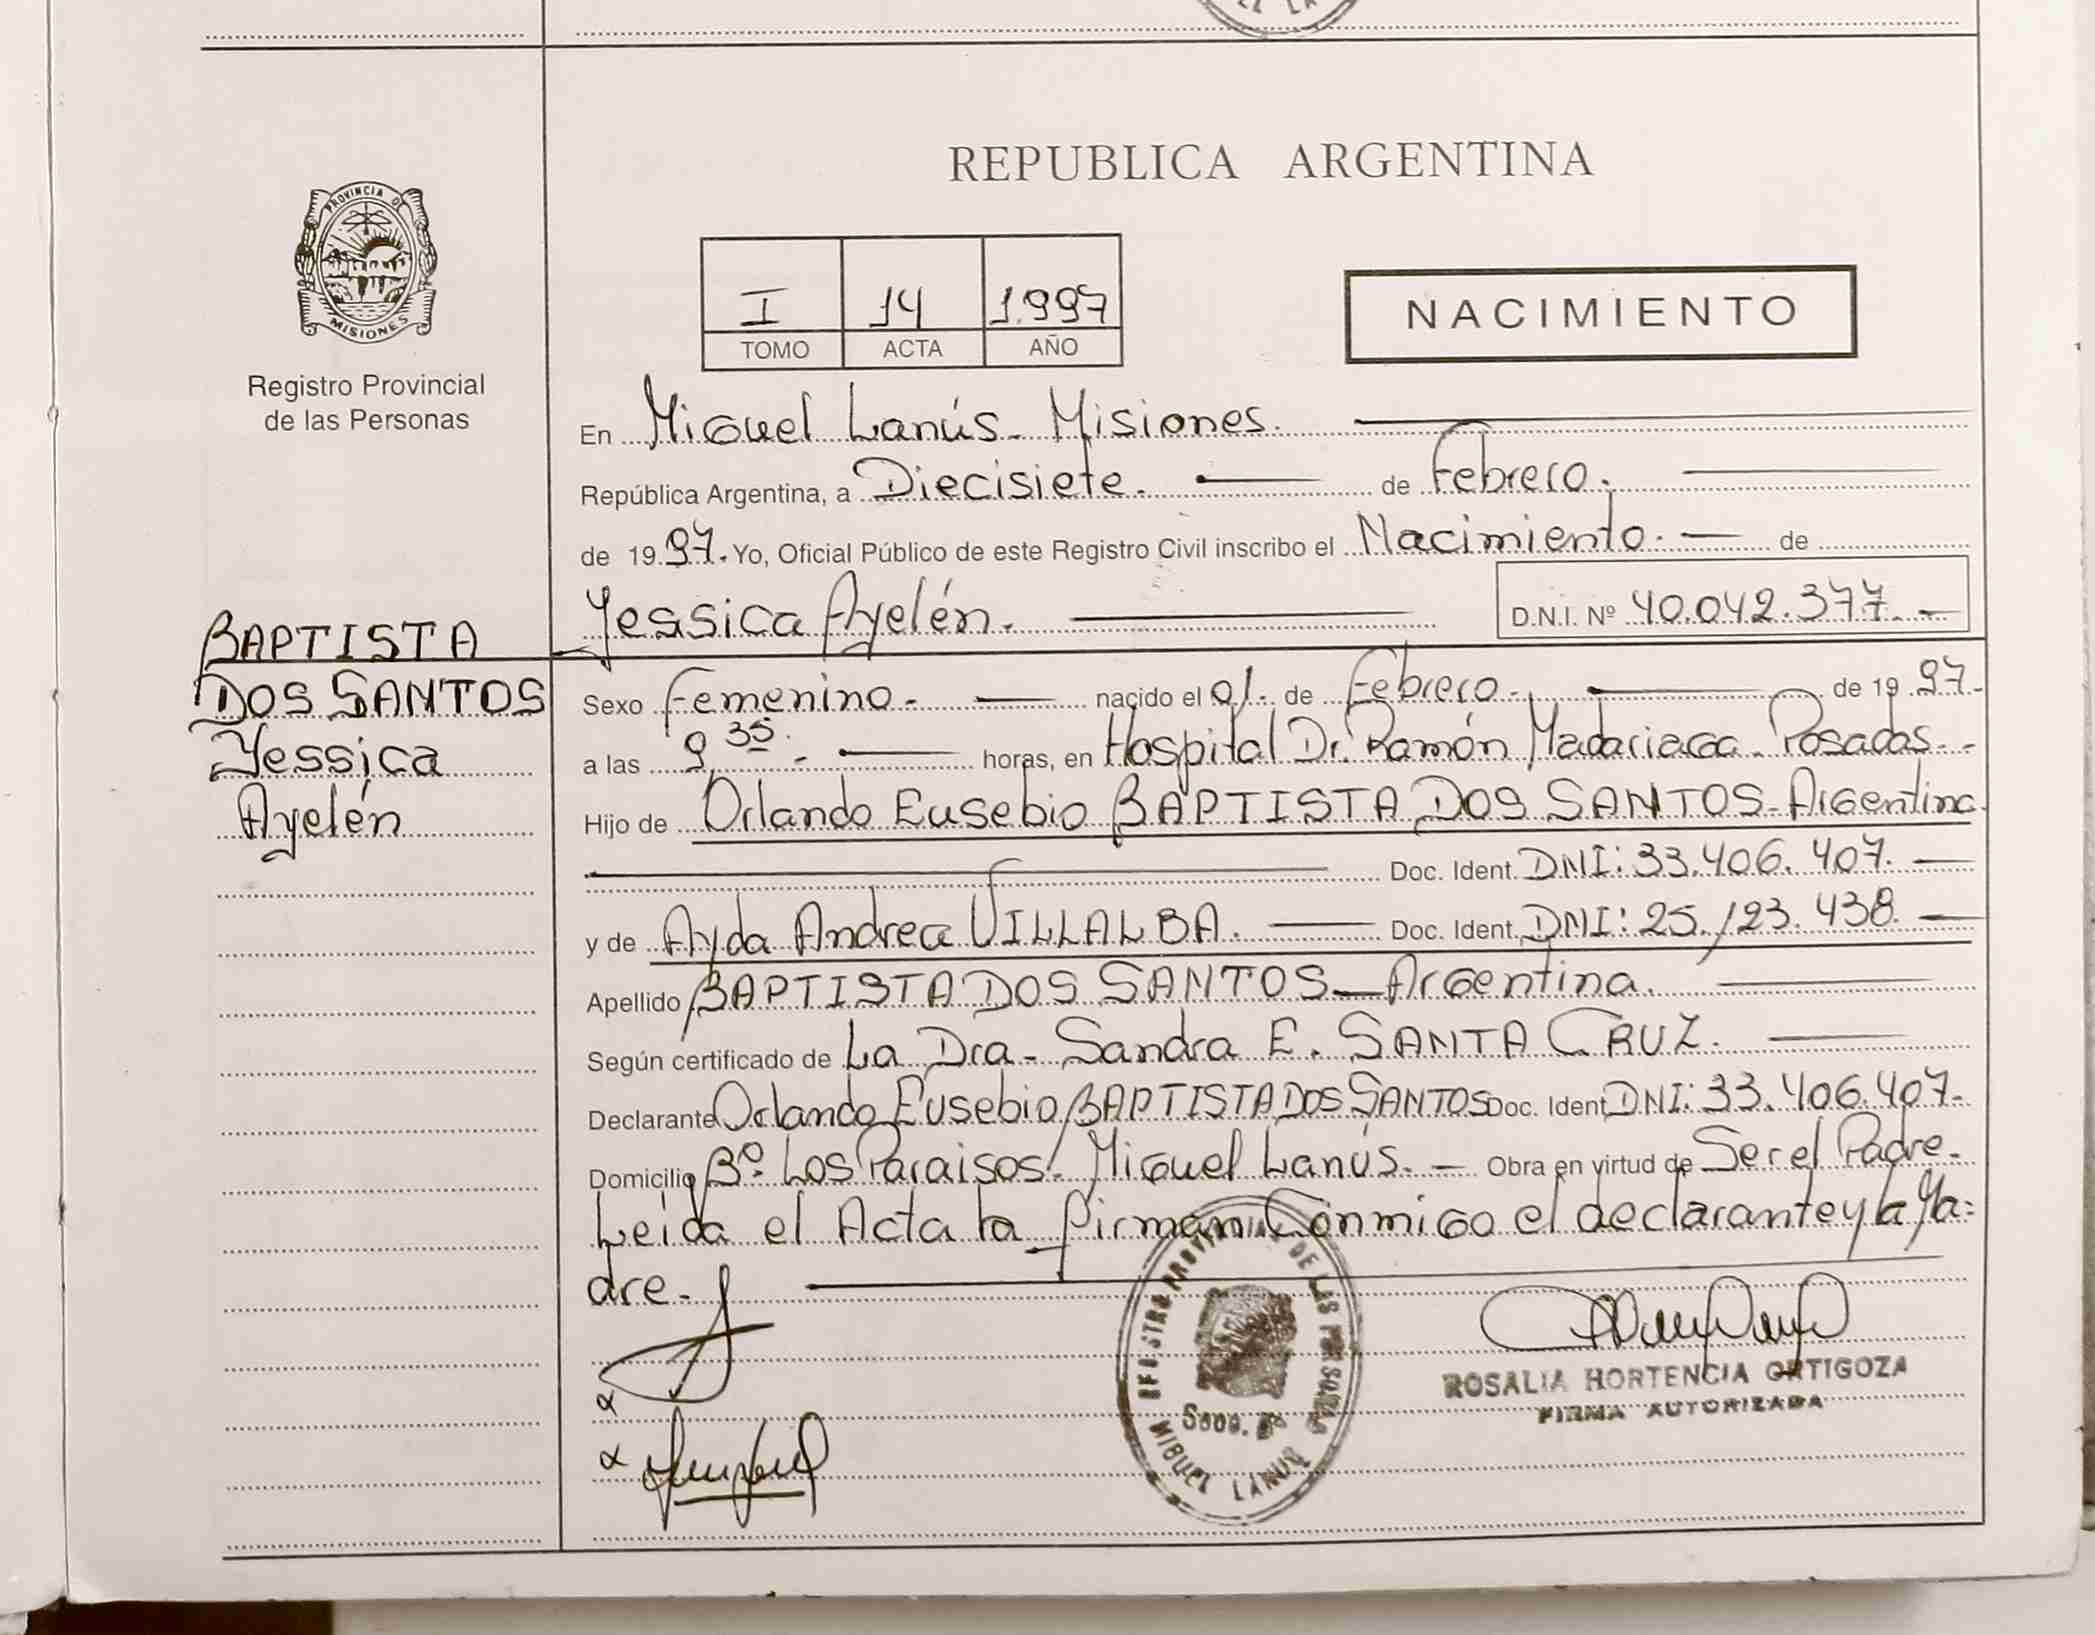 REPUBLICA ARGENTINA
PROVINCIA D
MISIONES
Registro Provincial
de las Personas
I 14 1.997
TOMO ACTA AÑO
NACIMIENTO
En Miguel Lanús - Misiones.
República Argentina, a Diecisiete. de Febrero.
de 19 97. Yo, Oficial Público de este Registro Civil inscribo el Nacimiento. de
Yessica Ayelén. D.N.I. Nº 40.042.377.-
BAPTISTA
DOS SANTOS
Yessica
Ayelén
Sexo Femenino. nacido el 01. de Febrero. de 19 97.
a las 9,35. horas, en Hospital Dr. Ramón Madariaga - Posadas -
Hijo de Orlando Eusebio BAPTISTA DOS SANTOS - Argentina.
Doc. Ident. DNI: 33.406.407.
y de Ayda Andrea VILLALBA. Doc. Ident. DNI: 25.123.438.
Apellido BAPTISTA DOS SANTOS - Argentina.
Según certificado de La Dra. Sandra E. SANTA CRUZ.
Declarante Orlando Eusebio BAPTISTA DOS SANTOS Doc. Ident. DNI: 33.406.407.
Domicilio Bº Los Paraisos. Miguel Lanús. - Obra en virtud de Ser el Padre.
Leida el Acta la firman Conmigo el declarante y la Ma=
dre.
REGISTRO PROVINCIAL DE LAS PERSONAS
MIGUEL LANUS
ROSALIA HORTENCIA ORTIGOZA
FIRMA AUTORIZADA